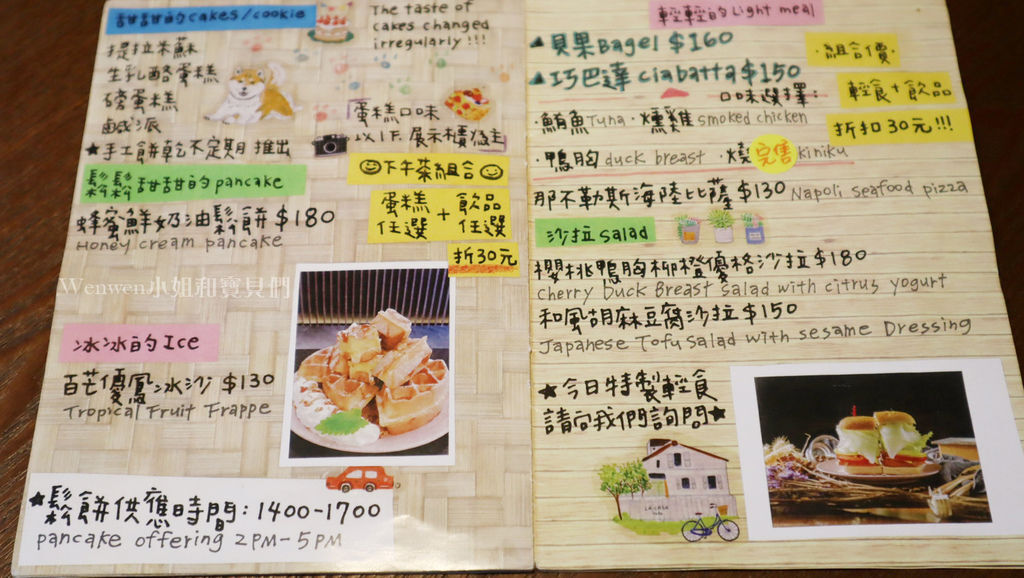 甜甜的cakes/cookie
The taste of
cakes changed
irregularly!!!
提拉米蘇
生乳酪蛋糕
磅蛋糕
鹹派
★手工餅乾不定期推出
蛋糕口味
以1F.展示櫃為主
鬆鬆甜甜的pancake
蜂蜜鮮奶油鬆餅$180
Honey cream pancake
下午茶組合
蛋糕任選 + 飲品任選
折30元
Wenwen小姐和寶貝們
冰冰的Ice
百芒優鳳冰沙 $130
Tropical Fruit Frappe
★鬆餅供應時間:1400-1700
pancake offering 2PM-5PM
輕輕的Light meal
▲貝果Bagel $160
▲巧巴達ciabatta$150
口味選擇:
·組合價·
輕食+飲品
折扣30元!!!
·鮪魚Tuna·燻雞smoked chicken
·鴨胸duck breast ·燒 完售 kiniku
那不勒斯海陸比薩$130 Napoli seafood pizza
沙拉salad
櫻桃鴨胸柳橙優格沙拉$180
cherry Duck Breast salad with citrus yogurt
和風胡麻豆腐沙拉$150
Japanese Tofu Salad with sesame Dressing
★今日特製輕食
請向我們詢問★
LA CASA